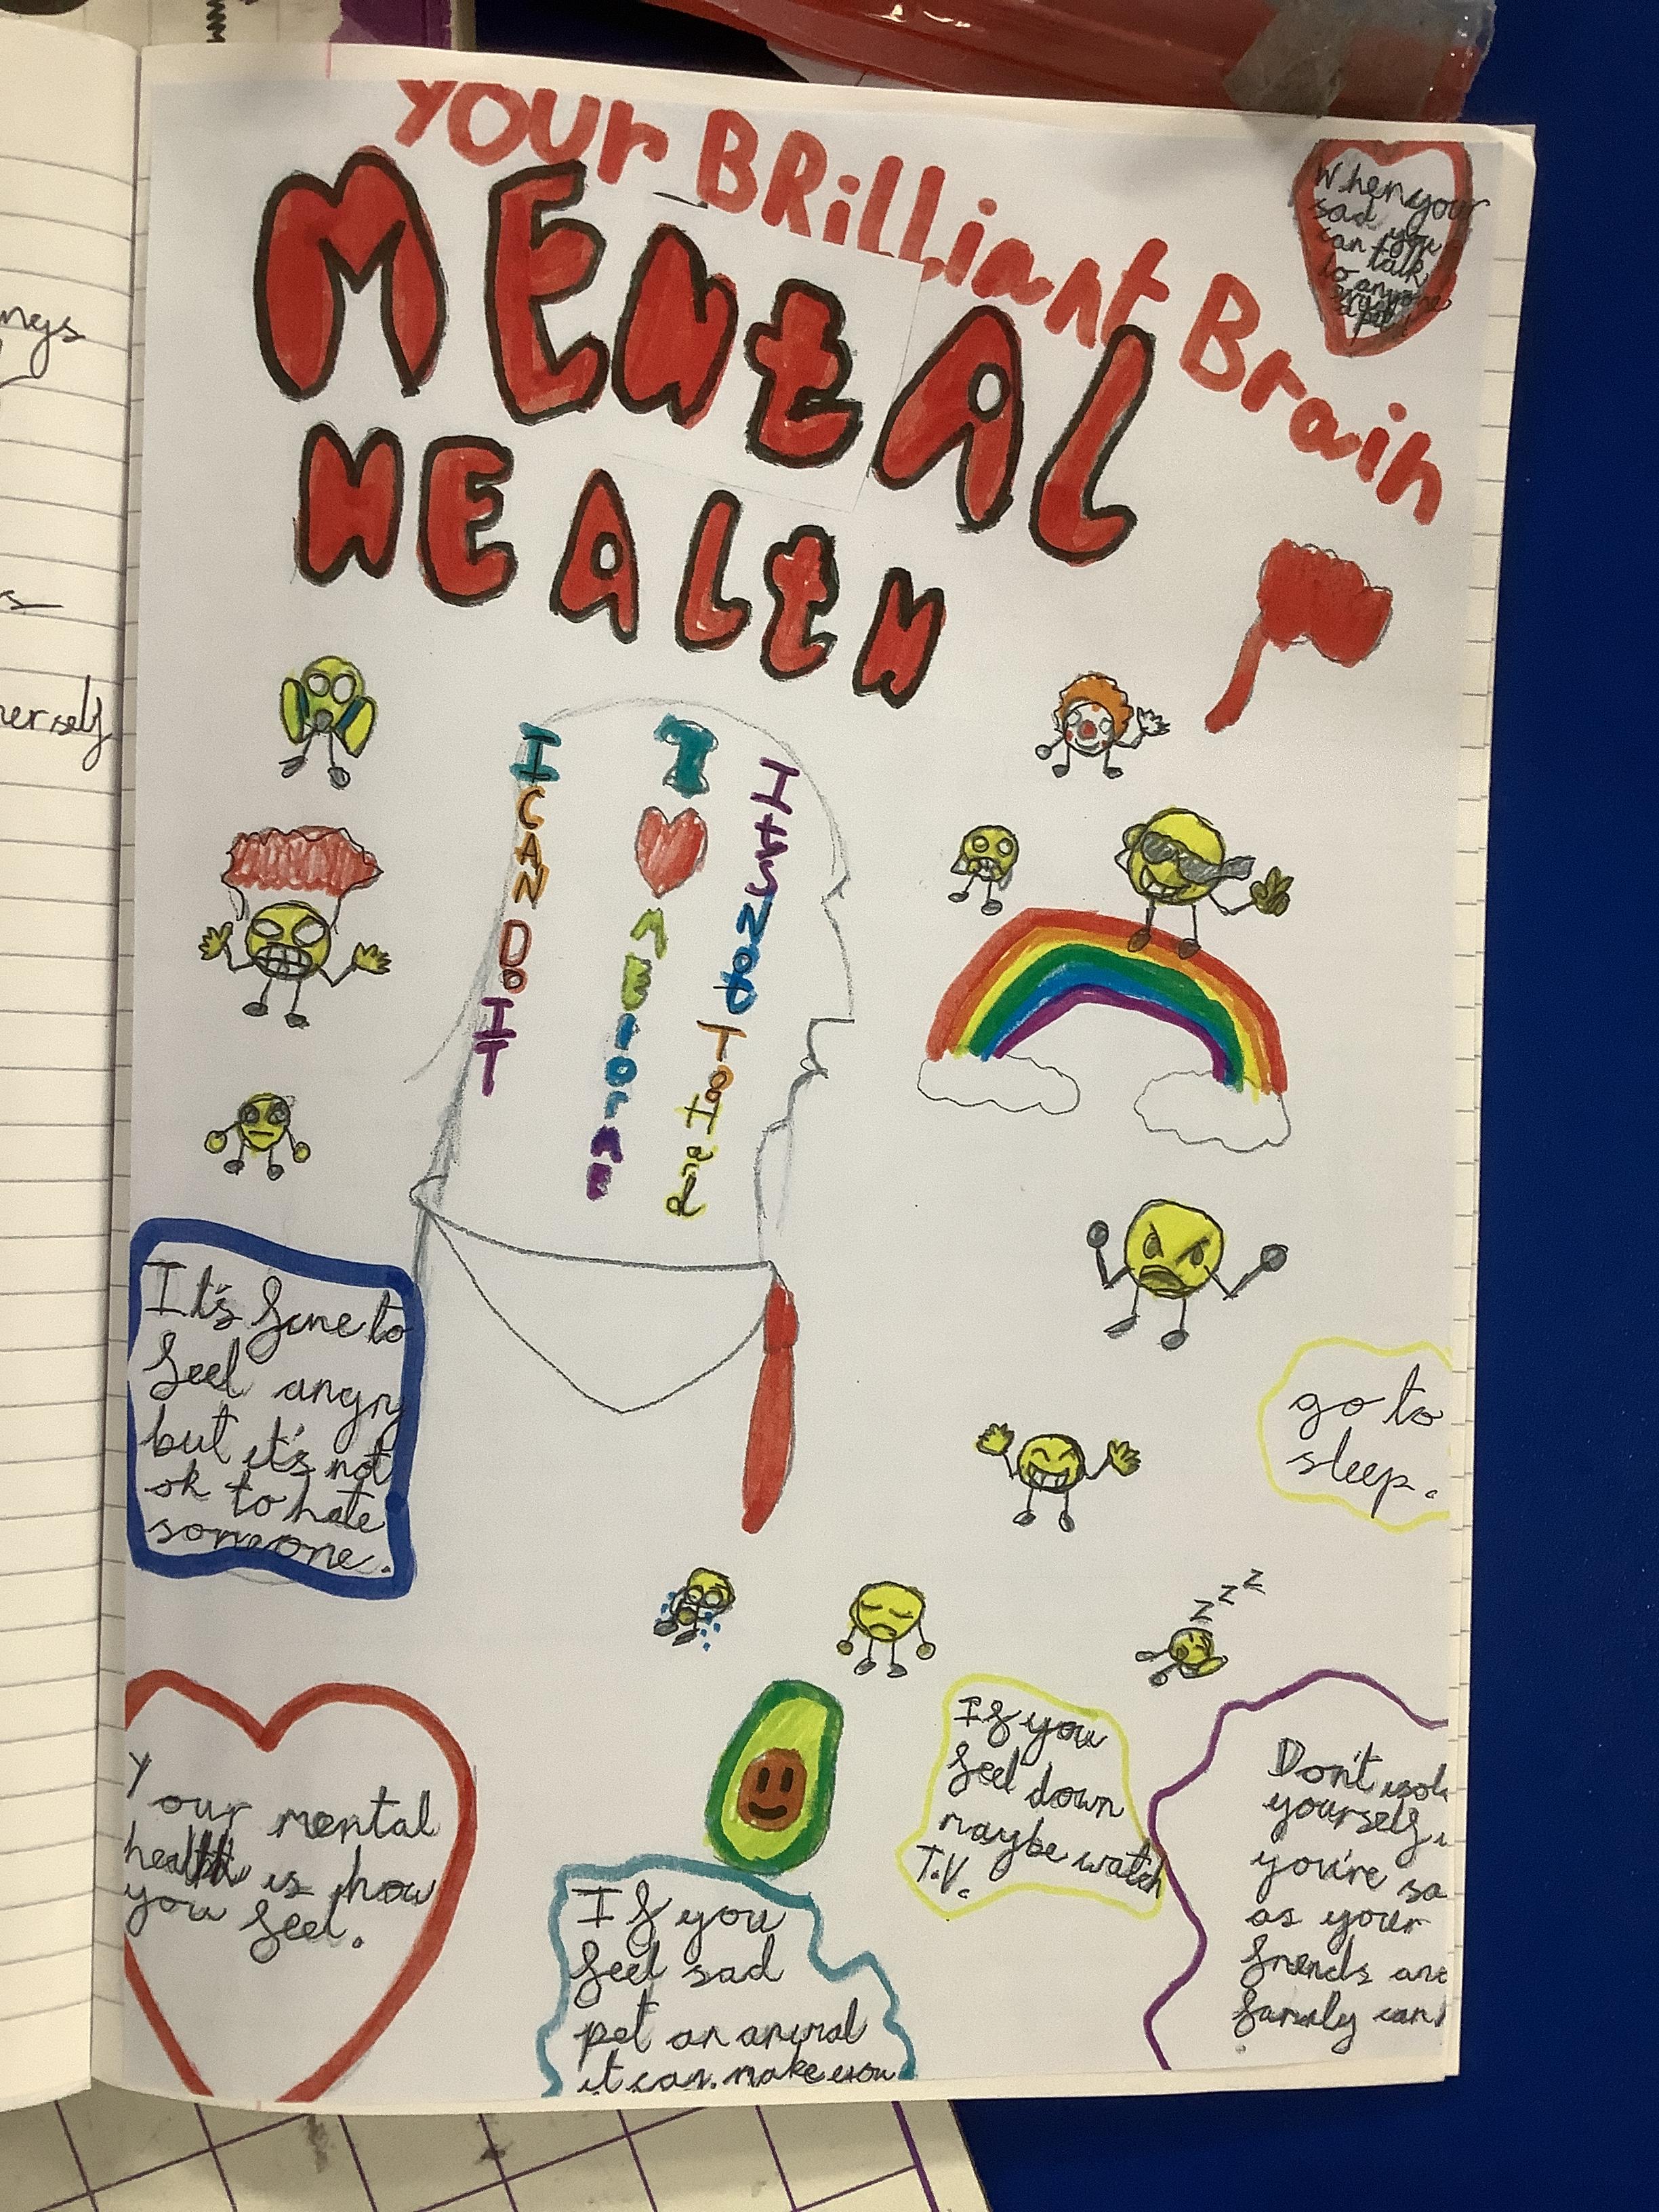 YOUr BRilliant Brain
MENtAL
HEALtH
When your
sad you
can
talk
to
anyone
I CAN Do IT
I
It's Not To Hard
It's fine to
feel angry
but it's not
ok to hate
someone.
go to
sleep.
z z z
Your mental
health is how
you feel.
If you
feel sad
pet an animal
it can make you
If you
feel down
maybe watch
T.V.
Don't isol
yourself
you're sa
as your
friends and
family can
ngs
s
herself